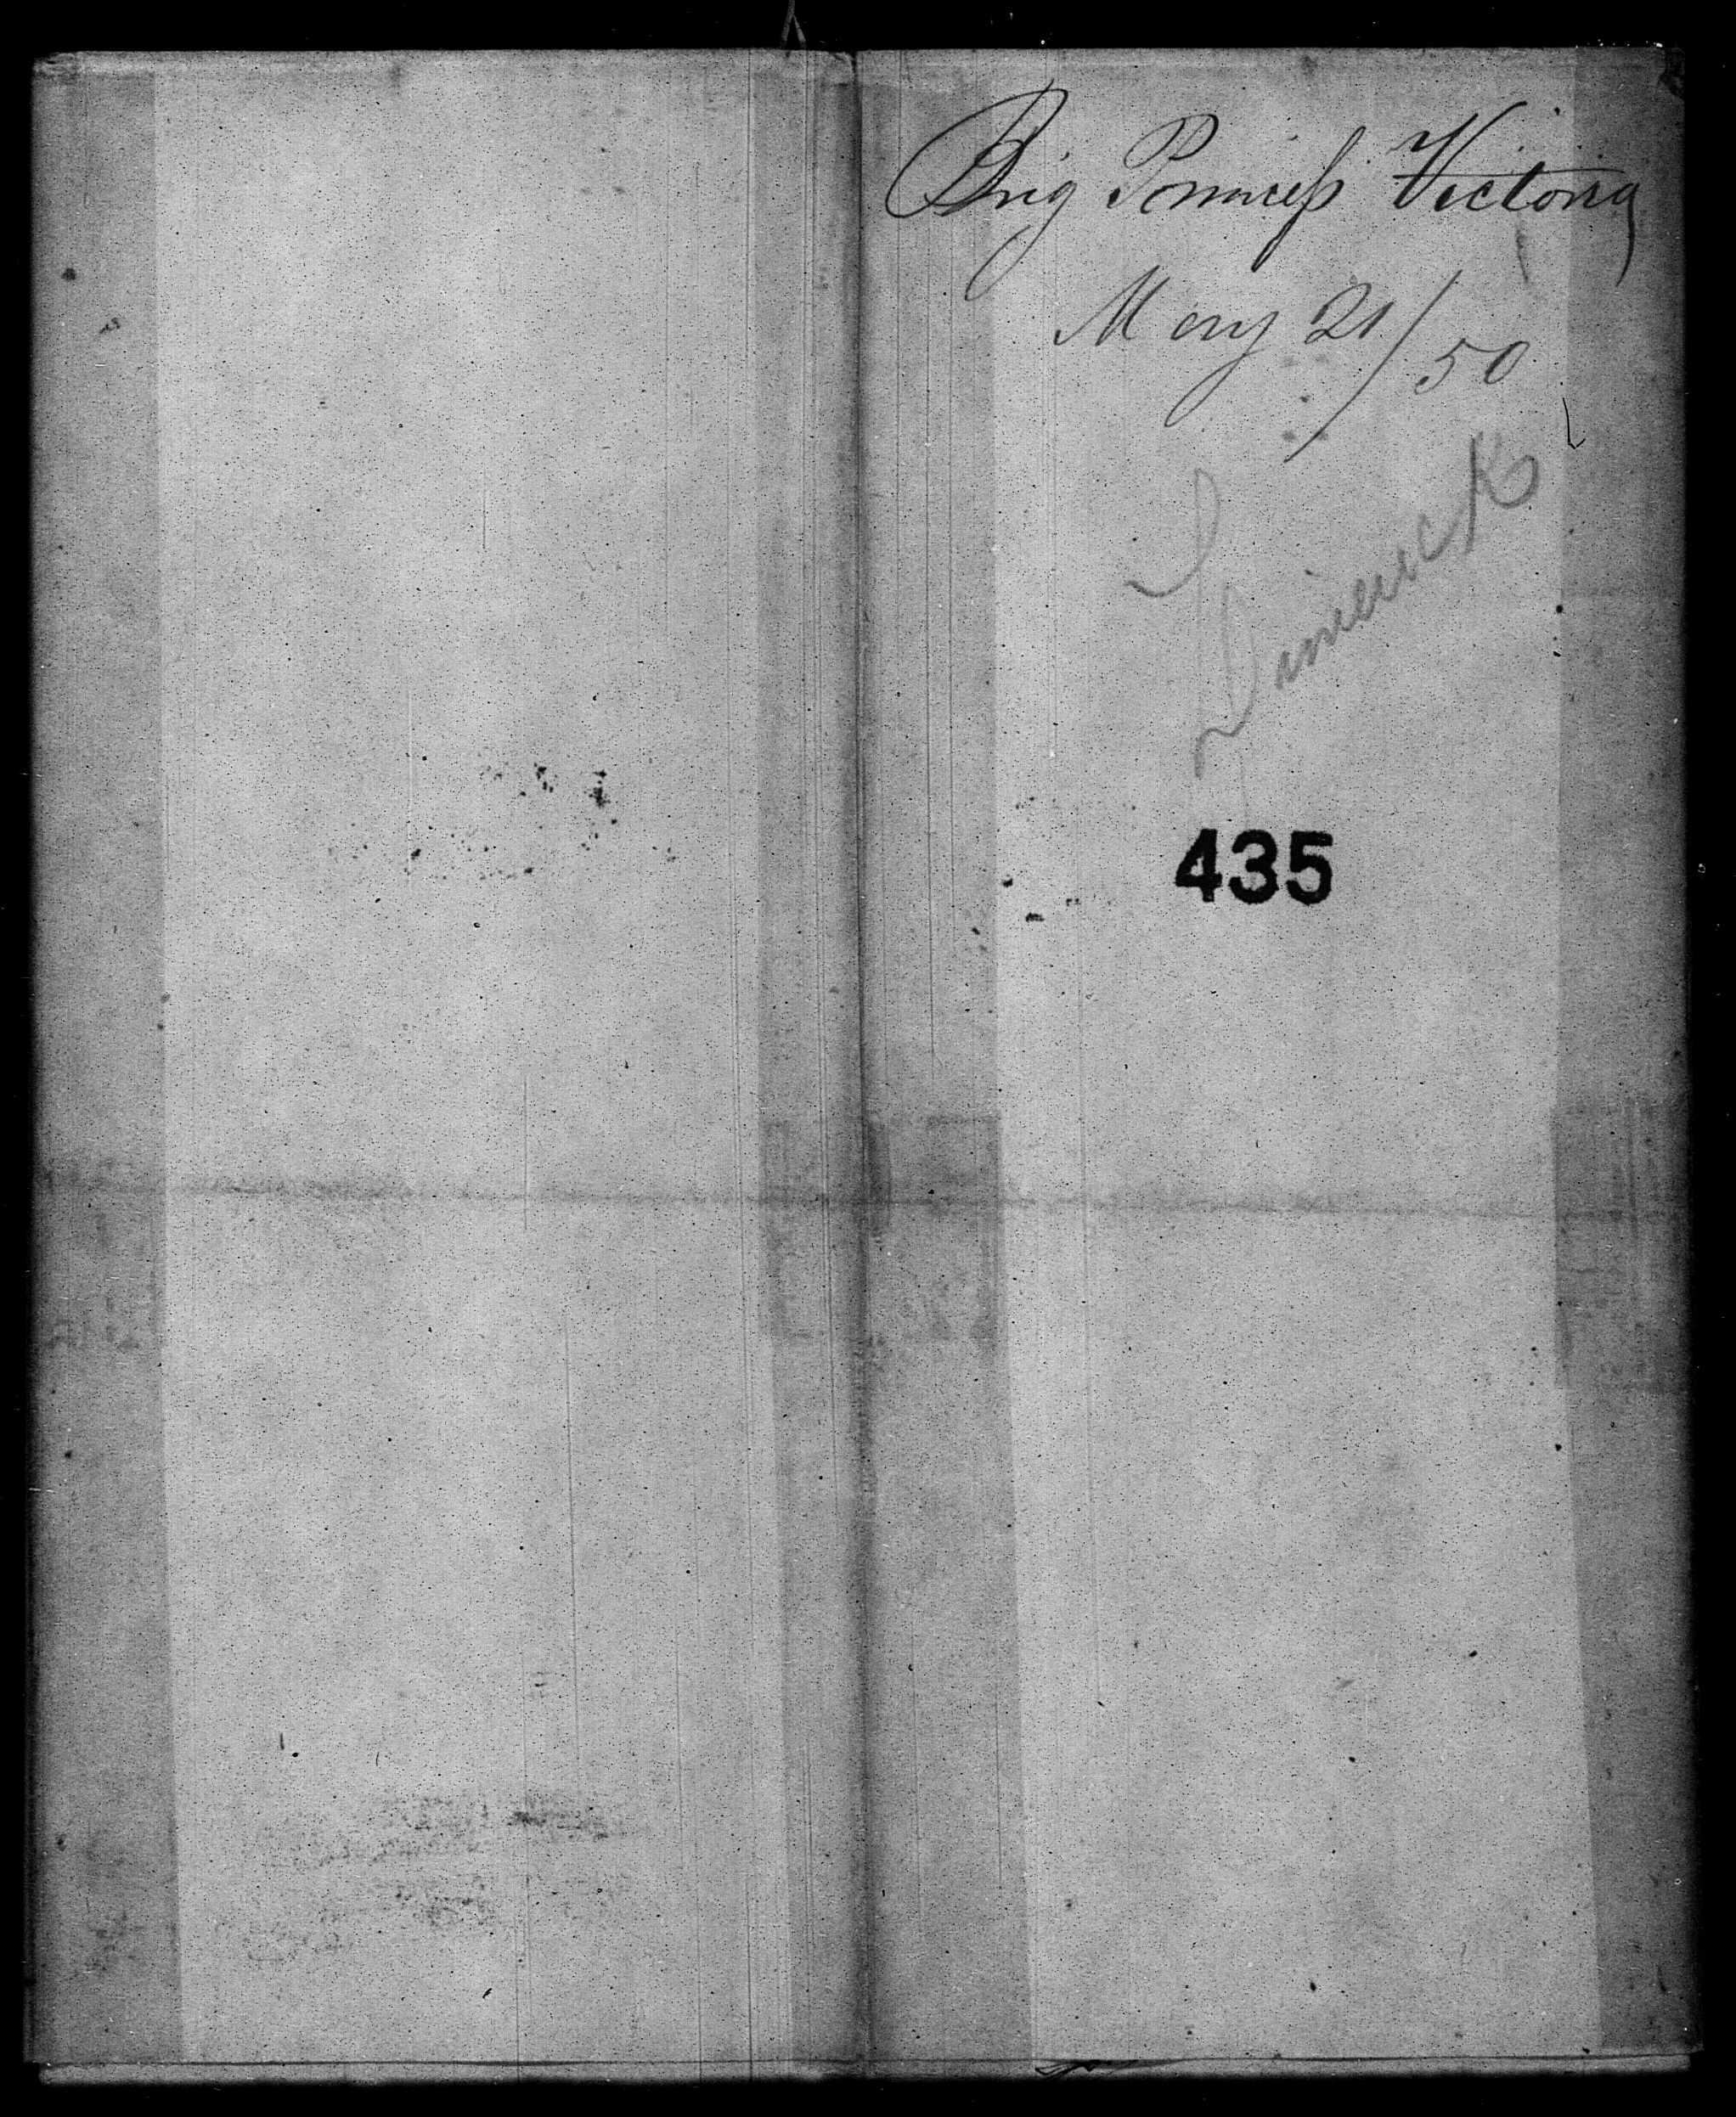 Brig Princess Victoria
May 21/50
Limerick
435